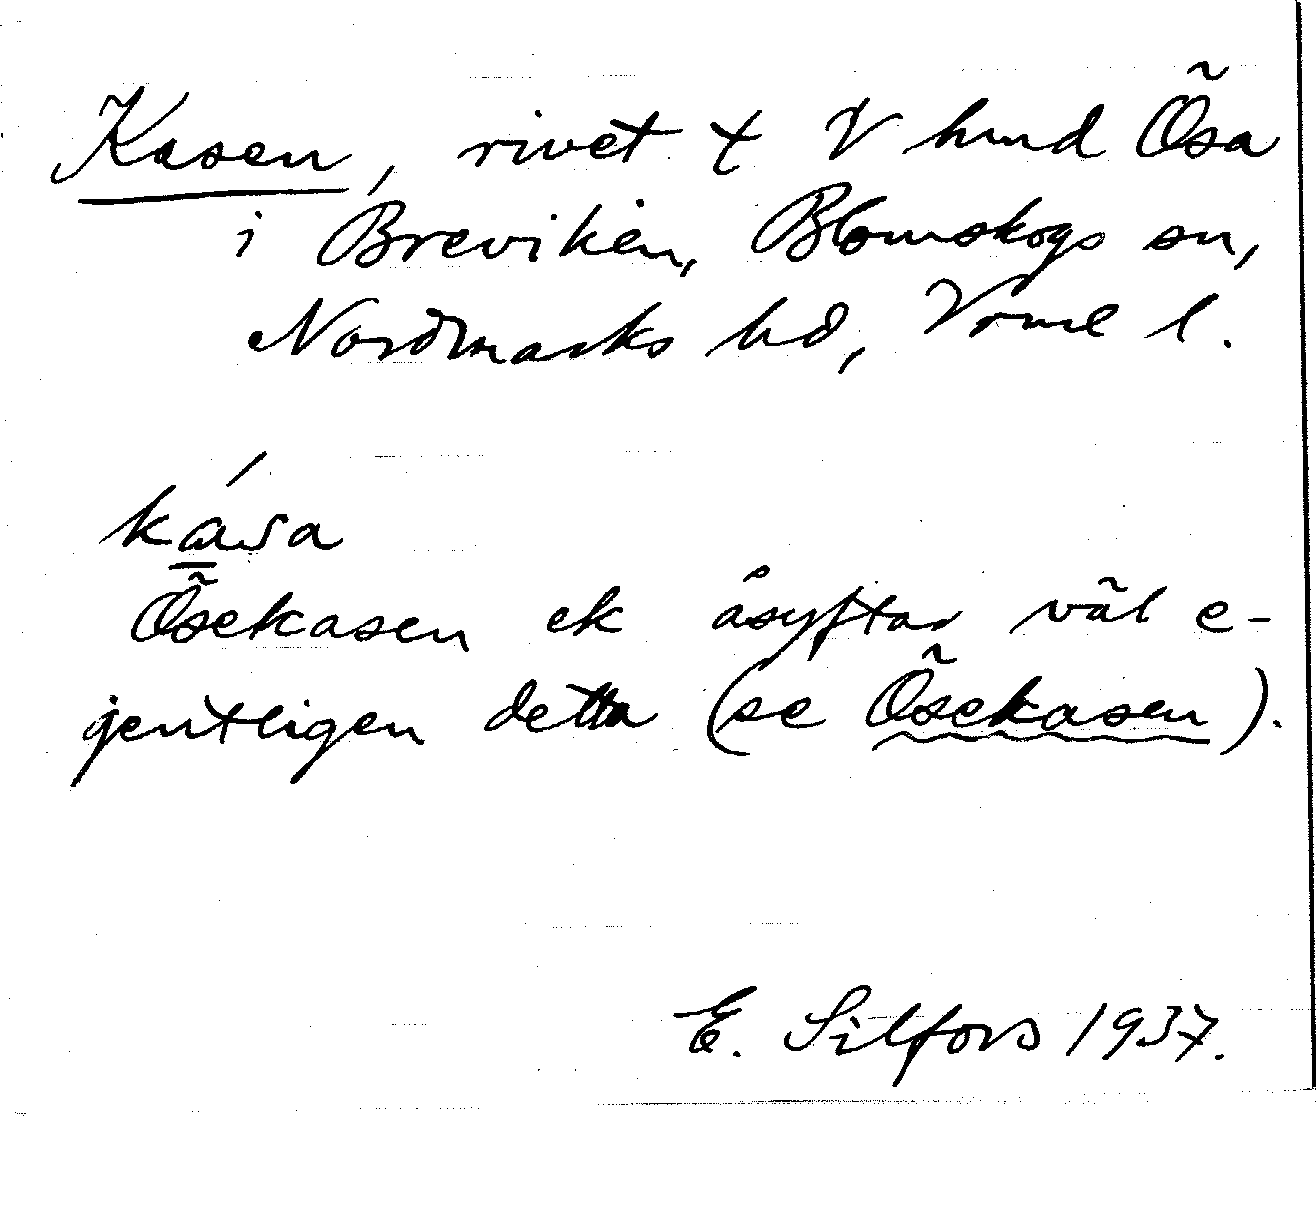 Kasen, rivet + V hmd Ösa
i Breviken, Blomskogs sn,
Nordmarks hd, Vrml l.
Ösekasen ek åsyftar väl e-
jentligen detta (se Ösekasen).
E. Silfors 1937.